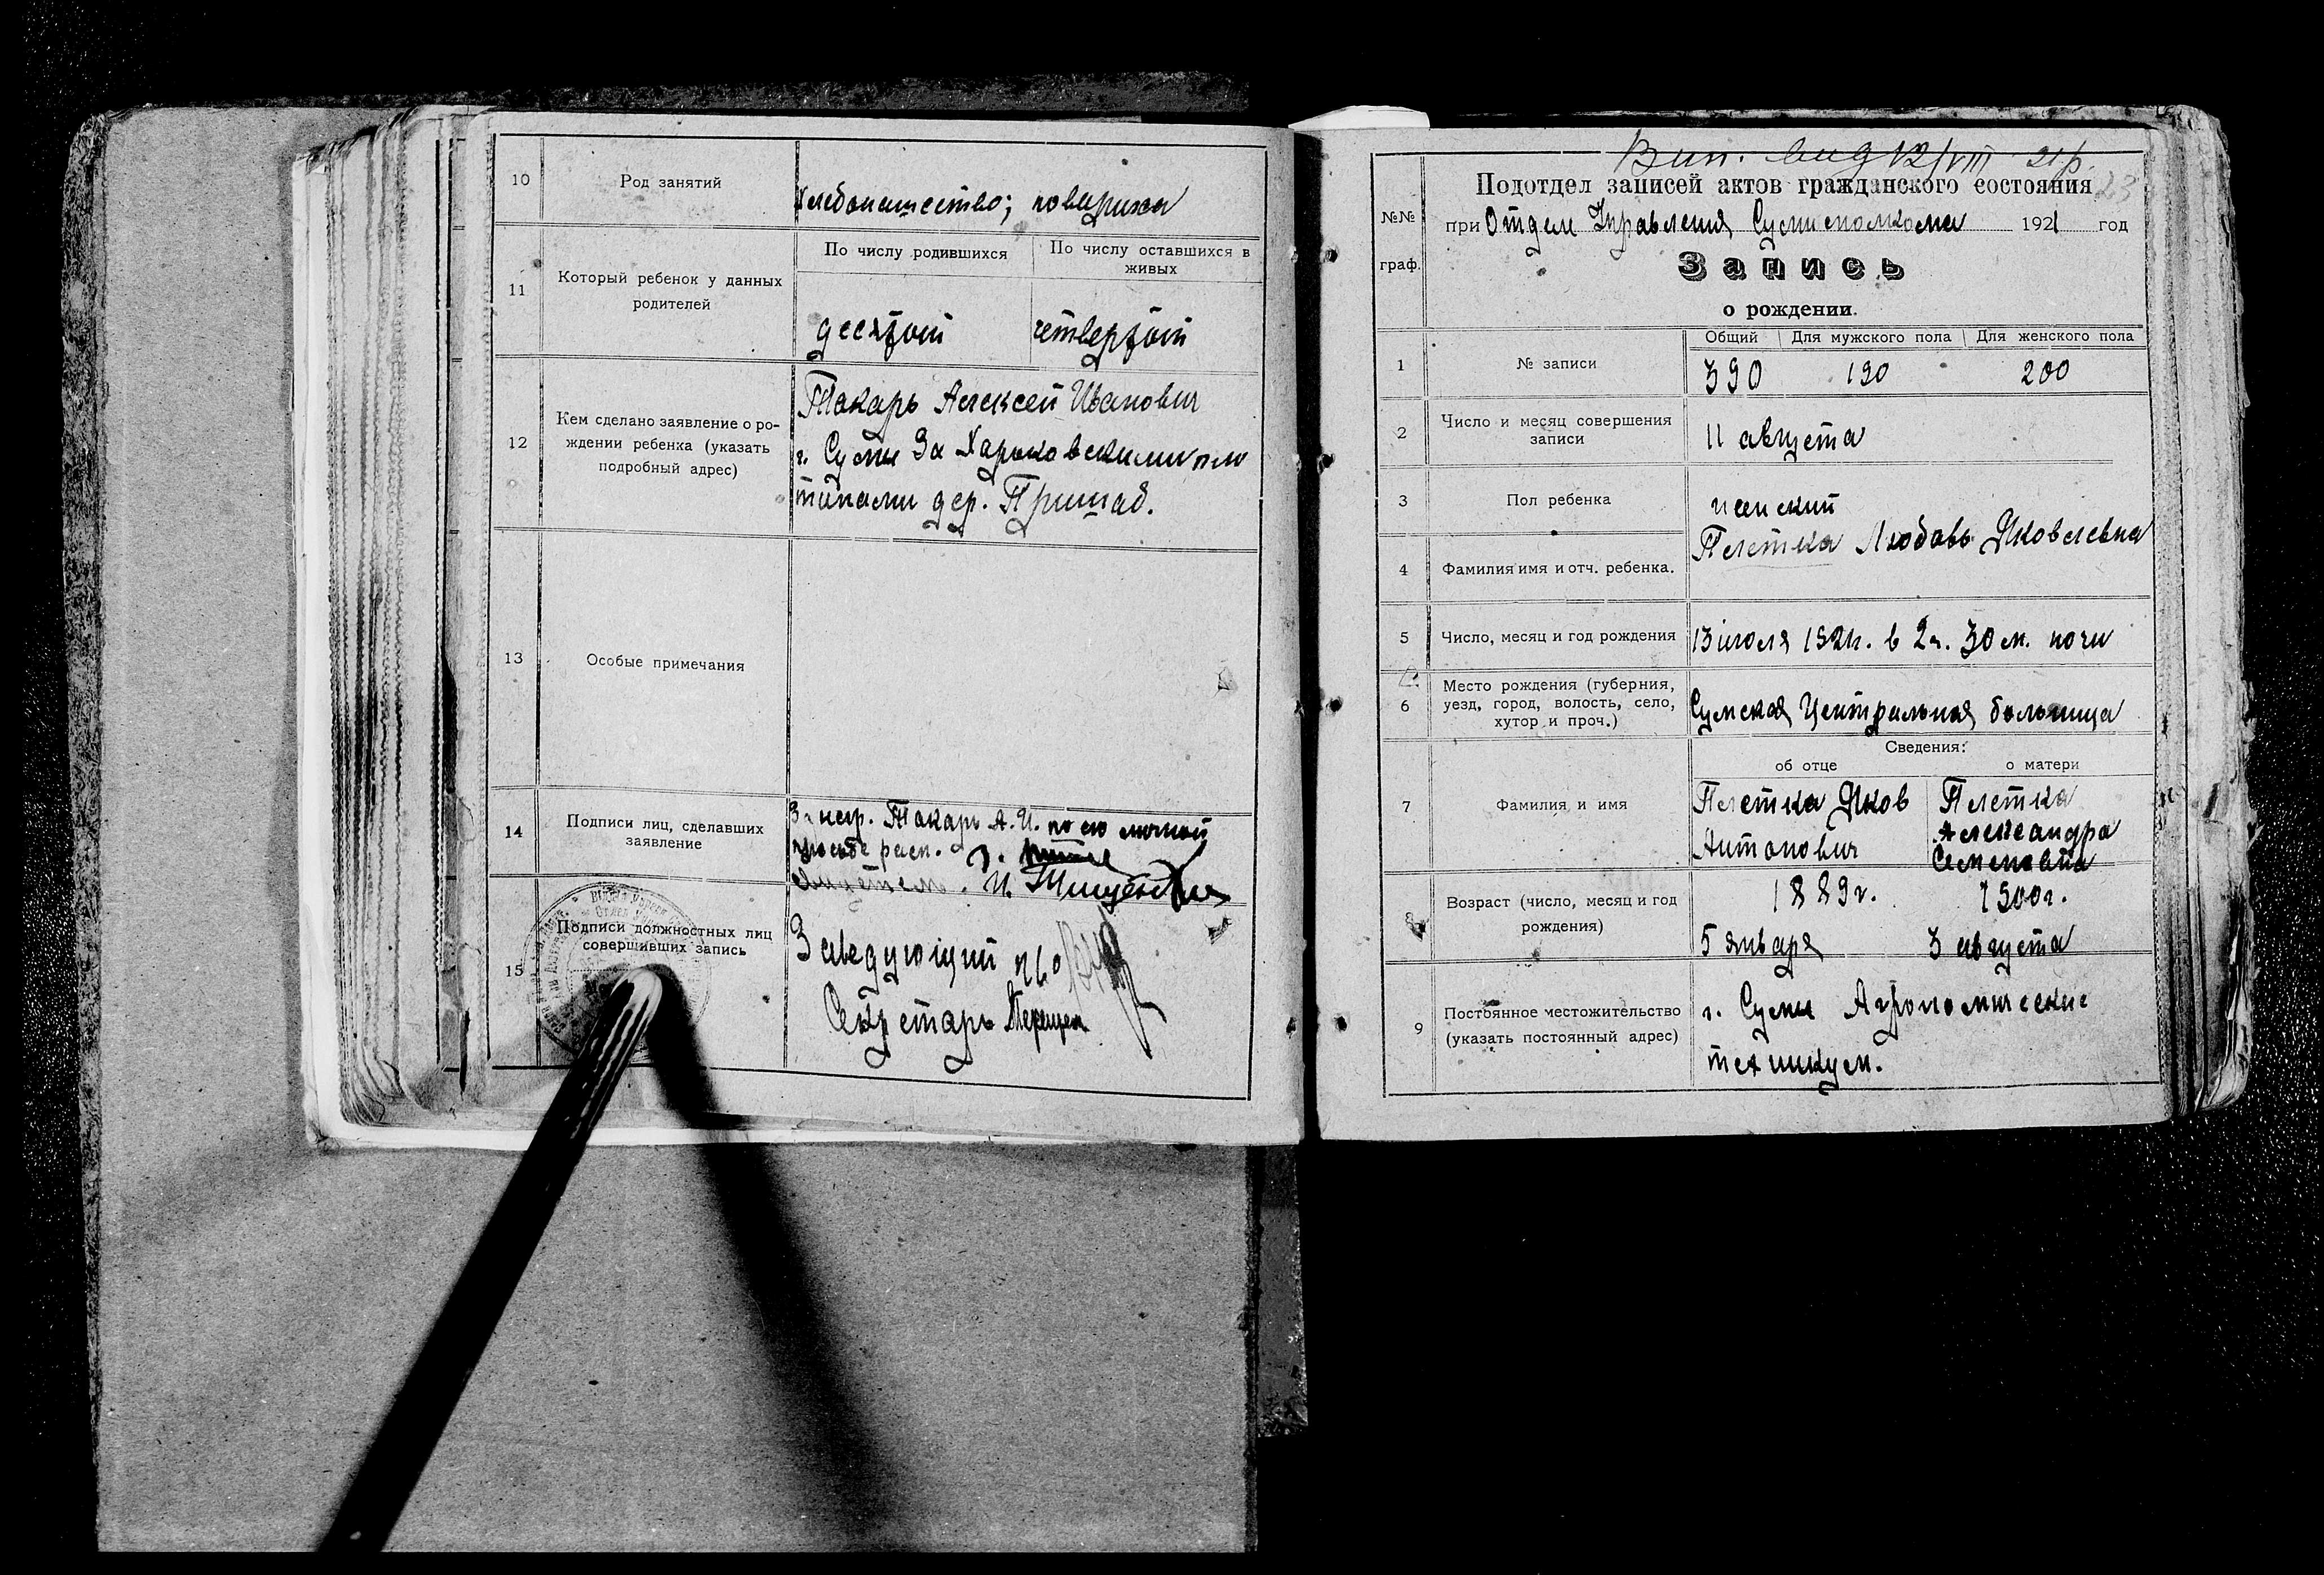 10
Род занятий
хлебопашество; повариха
11
Который ребенок у данных
родителей
По числу родившихся
По числу оставшихся в
живых
десятый
четвертый
12
Кем сделано заявление о ро-
ждении ребенка (указать
подробный адрес)
Токарь Алексей Иванович
г. Сумы За Харьковскими пло
тинами дер. Пришиб.
13
Особые примечания
14
Подписи лиц, сделавших
заявление
За негр. Токарь А. И. по его личной
просьбе расп.
15
Подписи должностных лиц
совершивших запись
Заведующий п/о
Секретарь
Вип. 12/VIII 21р.
№№
граф.
Подотдел записей актов гражданского состояния
при Отделе Управления Сумисполкома 1921 год
Запись
о рождении.
1
№ записи
Общий
Для мужского пола
Для женского пола
390
190
200
2
Число и месяц совершения
записи
11 августа
3
Пол ребенка
женский
4
Фамилия имя и отч. ребенка.
Плетка Любовь Яковлевна
5
Число, месяц и год рождения
13 июля 1921г. в 2ч. 30 м. ночи
6
Место рождения (губерния,
уезд, город, волость, село,
хутор и проч.)
Сумская Центральная больница
Сведения:
об отце
о матери
7
Фамилия и имя
Плетка Яков
Антонович
Плетка
Александра
Семеновна
Возраст (число, месяц и год
рождения)
1889г.
5 января
1900г.
3 августа
9
Постоянное местожительство
(указать постоянный адрес)
г. Сумы Агрономические
техникум.